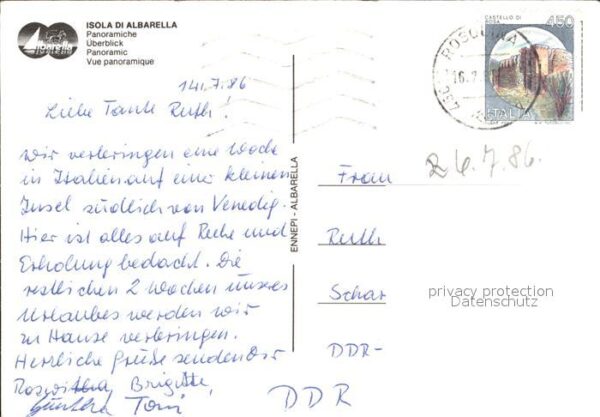 ISOLA DI ALBARELLA
Panoramiche
Überblick
Panoramic
Vue panoramique
Albarella
14.7.86
Liebe Tante Ruth!
Wir verbringen eine Woche
in Italien auf einer kleinen
Insel südlich von Venedig.
Hier ist alles auf Ruhe und
Erholung bedacht. Die
restlichen 2 Wochen unseres
Urlaubes werden wir
zu Hause verbringen.
Herzliche Grüße senden Dir
Roswitha, Brigitte,
Günther Toni
ENNEPI - ALBARELLA
CASTELLO DI
450
ITALIA
ROSOLINA
16.7.
24.7.86.
Frau
Ruth
Schar
DDR-
DDR
privacy protection
Datenschutz